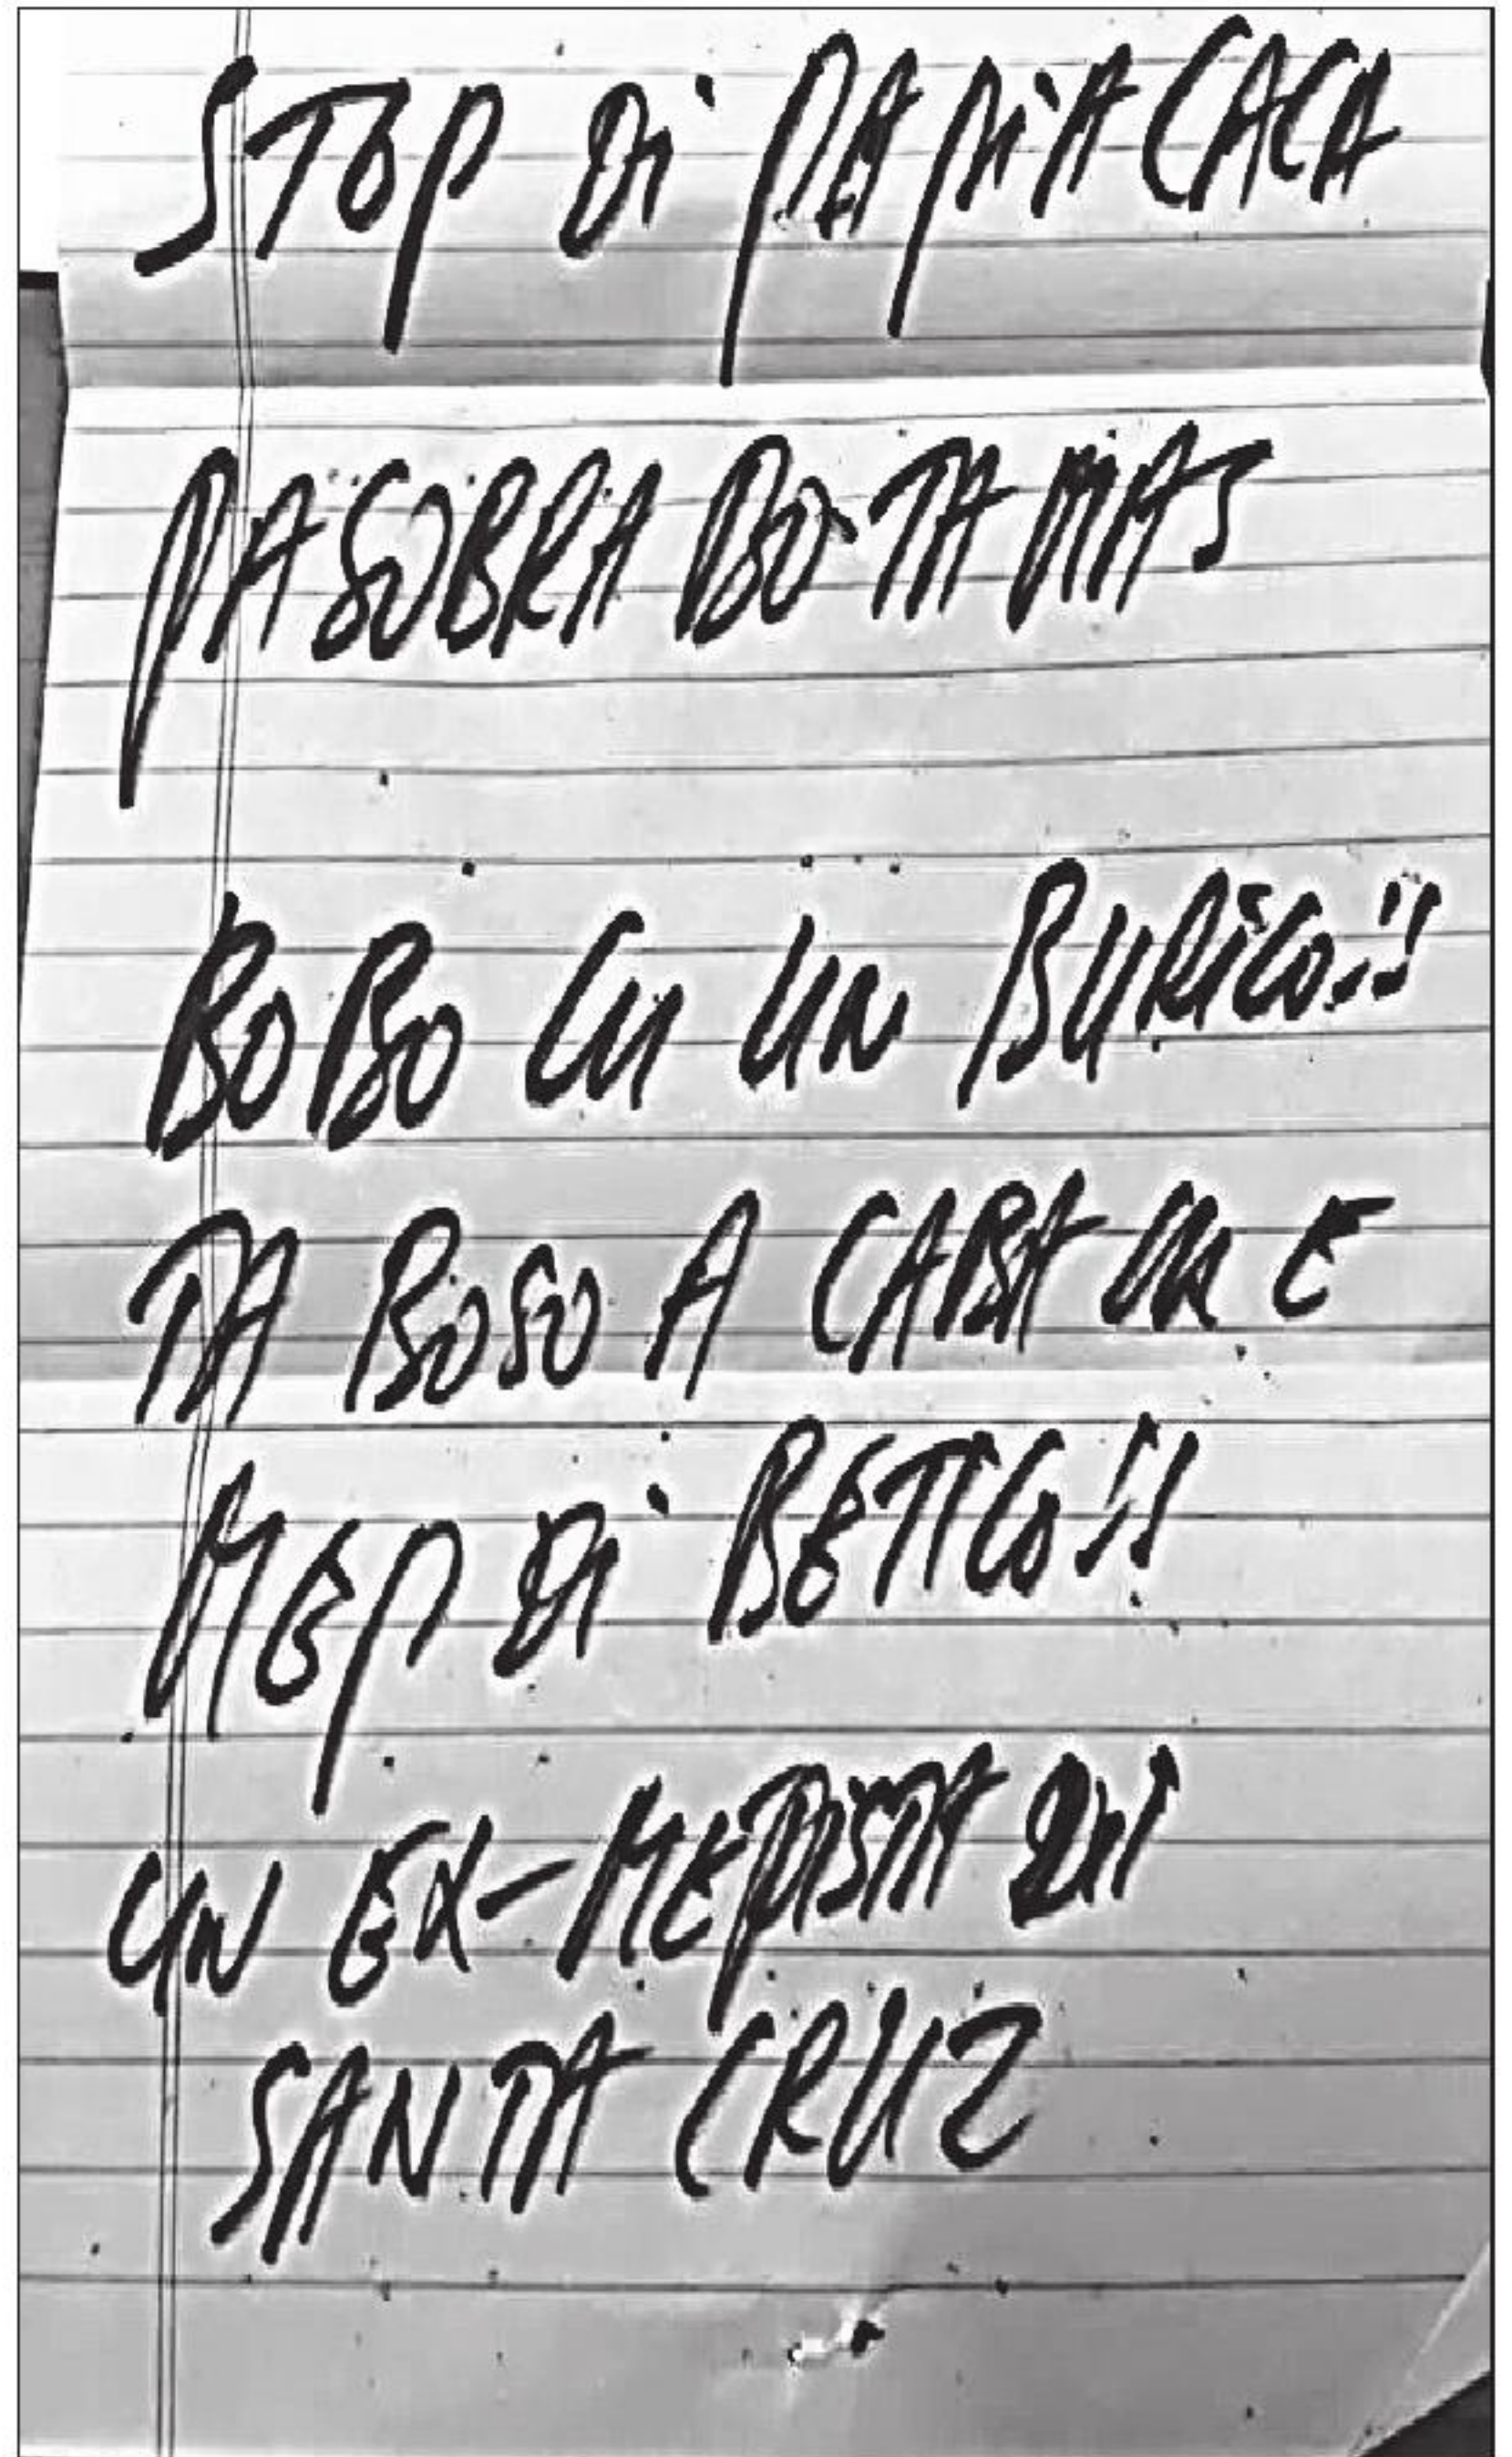 STOP Di PAPiA CACA
PASOBRA BO TA MAS
BOBO CU UN BURiCO!!
TA BOSO A CABA CU E
MEP Di BETICO!!
UN EX-MEPISTA Di
SANTA CRUZ